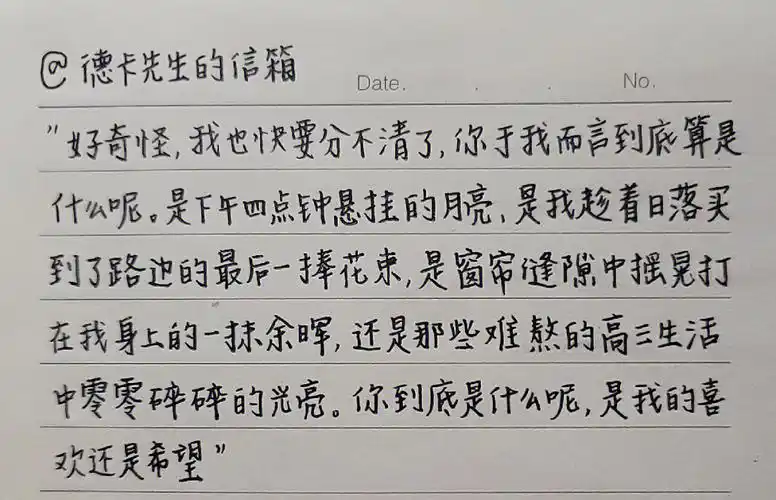 @德卡先生的信箱
Date. . . No.
"好奇怪,我也快要分不清了,你于我而言到底算是
什么呢。是下午四点钟悬挂的月亮,是我趁着日落买
到了路边的最后一捧花束,是窗帘缝隙中摇晃打
在我身上的一抹余晖,还是那些难熬的高三生活
中零零碎碎的光亮。你到底是什么呢,是我的喜
欢还是希望"